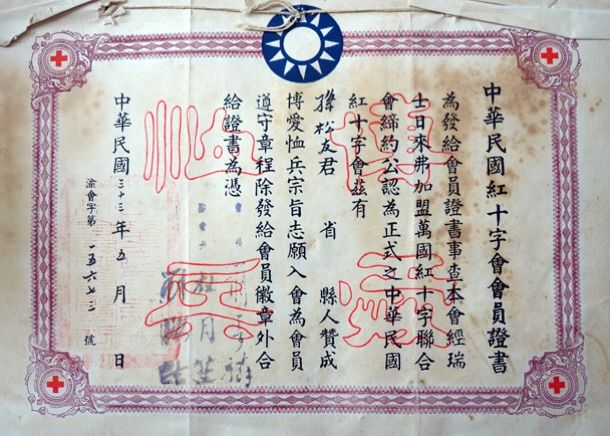 中華民國紅十字會會員證書
為發給會員證書事查本會經瑞
士日來弗加盟萬國紅十字聯合
會締約公認為正式之中華民國
紅十字會茲有
孫松友君 省 縣人贊成
博愛恤兵宗旨志願入會為會員
遵守章程除發給會員徽章外合
給證書為憑
杜月笙
中華民國三十三年五月 日
渝會字第一五六七三號
博愛